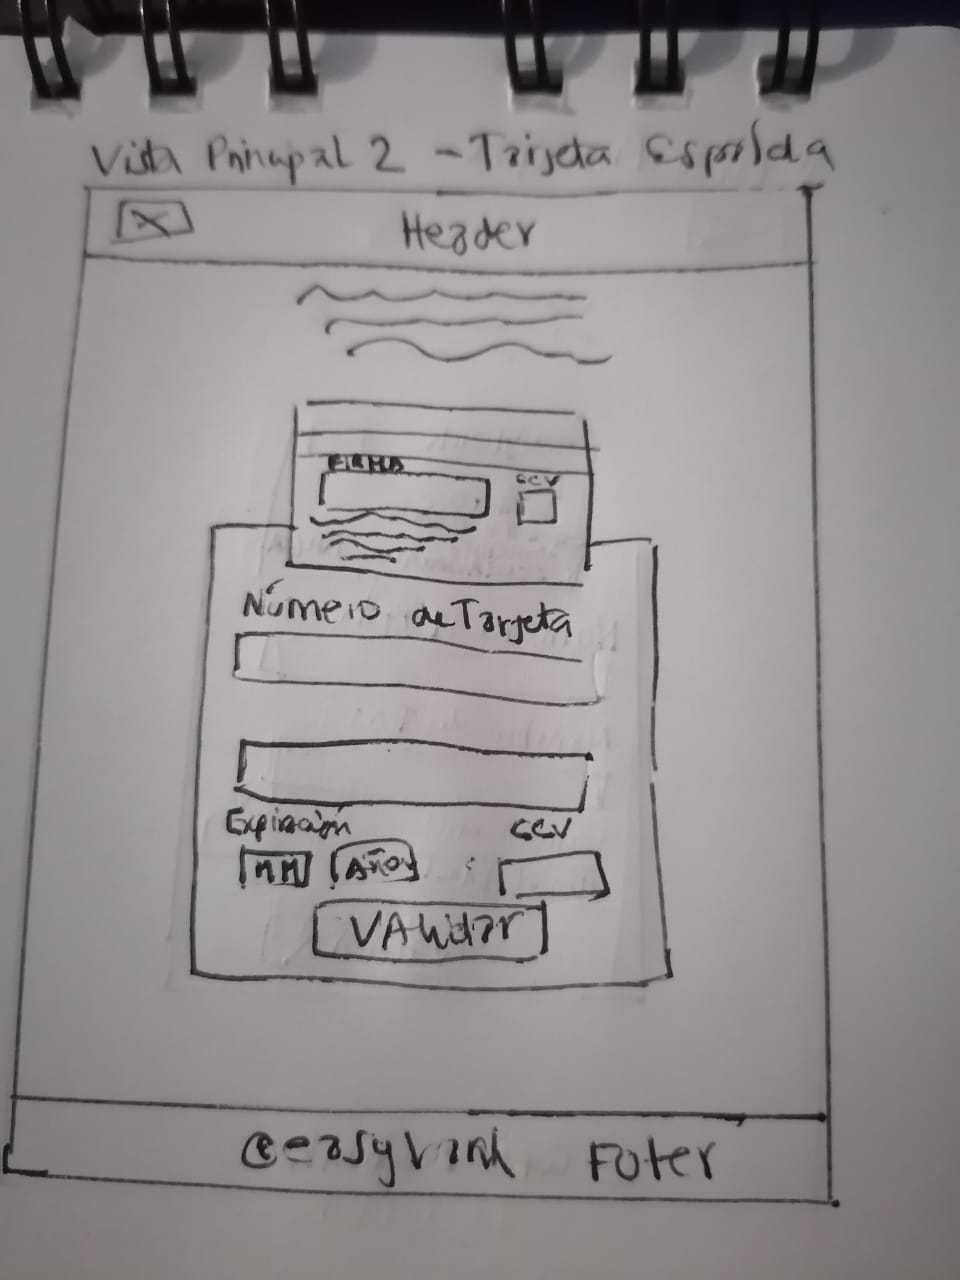 Vista Prinupal 2 - Tarjeta Espalda
Header
FIRMA
CCV
Número de Tarjeta
Expiración
CCV
MM Años
VAlidar
@easybank Foter